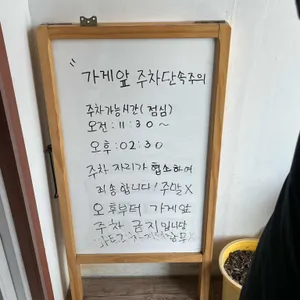 " 가게앞 주차단속주의
주차가능시간(점심)
오전:11:30~
오후:02:30
주차 자리가 협소하여
죄송합니다! 주말X
오후부터 가게앞
주차 금지입니다